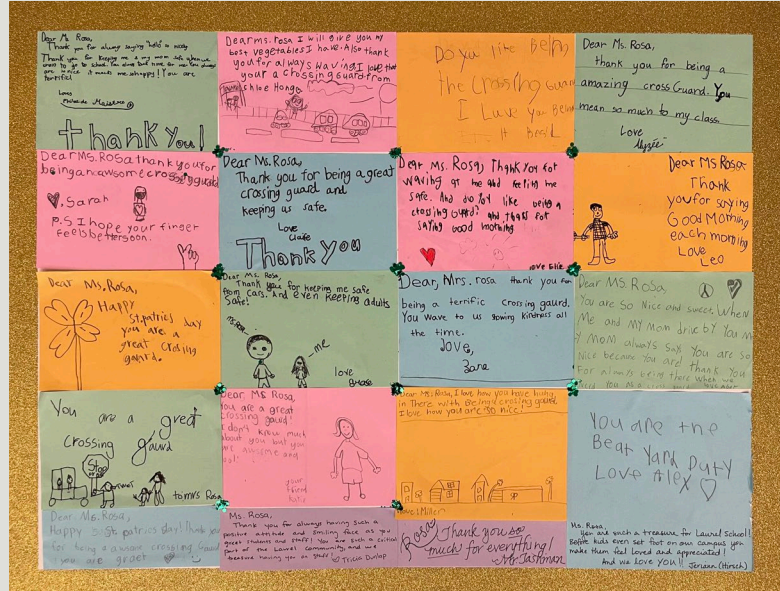 Dear Ms. Rosa,
Thank you for always saying "hello" so nicely
Thank you for keeping me & my mom safe when we
are nice it makes me so happy! You are
terrific!
Love
Thank You!
Dear ms. rosa I will give you my
best vegetables I have. Also thank
you for always waving I love that
your a crossing guard from
Do you like being
the crossing Guard
I Luve You Being
It Best
Dear Ms. Rosa,
thank you for being a
amazing cross Guard. You
mean so much to my class.
Love
Dear Ms. Rosa thank you for
being an awsome crossing guard
Sarah
P.S. I hope your finger
feels better soon.
Dear Ms. Rosa,
Thank you for being a great
crossing guard and
keeping us safe.
Love
Thank You
Dear Ms. Rosa, Thank you for
waving at me and feeling me
safe. And do you like being a
crossing guard? and thanks for
saying good morning.
love Ellie
Dear Ms Rosa
Thank
you for saying
Good Morning
each morning
Love
Leo
Dear Ms. Rosa,
Happy
St. patries day
you are a
great crosing
guard.
Dear Ms. Rosa,
Thank you for keeping me safe
from cars. And even keeping adults
safe!
ms. rosa
me
love
Dear, Mrs. rosa thank you for
being a terrific crossing gaurd.
You wave to us sowing kindness all
the time.
Love,
Zane
Dear MS. Rosa,
You are so Nice and sweet. When
Me and My Mom drive by You
My MOM always Says You are So
Nice because You are thank You
For always being there when we
You are a great
crossing gaurd
Stop
to mrs Rosa
Dear, Ms Rosa
You are a great
crossing gaurd!
I don't know much
about you but you
are awsome and
your
friend
Dear Ms. Rosa, I love how you have hung
in There with Being a crossing gaurd
I love how you are SO nice!
You are the
Beat Yard Duty
Love Alex
Dear Ms. Rosa,
Happy st patrics day! Thank you
for being a crossing Guard
you are graet
Ms. Rosa,
Thank you for always having such a
positive attitude and smiling face as you
greet students and staff! You are such a critical
part of the Laurel Community, and we
treasure having you on staff!
Tricia Dunlap
Rosa
Thank you so
much for everything!
Mr Tashman
Ms. Rosa,
You are such a treasure for Laurel School!
Before kids even set foot on our campus you
make them feel loved and appreciated!
And we love you!!
Jeriann (Hirsch)